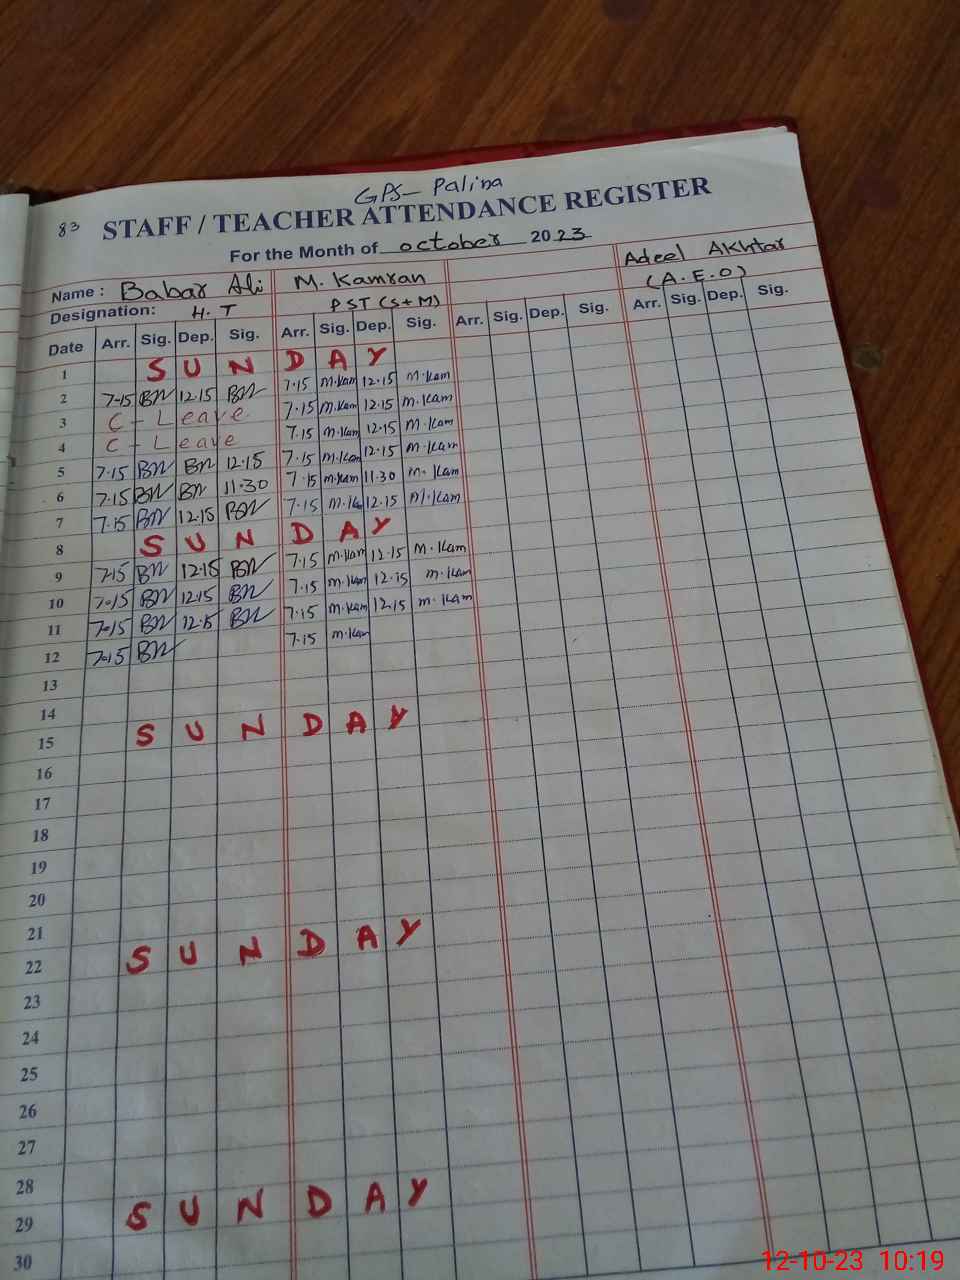 GPS- Palina
83 STAFF / TEACHER ATTENDANCE REGISTER
For the Month of october 2023
Name : Babar Ali M. Kamran Adeel Akhtar
Designation: H. T PST (S+M) (A.E.O)
Date Arr. Sig. Dep. Sig. Arr. Sig. Dep. Sig. Arr. Sig. Dep. Sig. Arr. Sig. Dep. Sig.
1 S U N D A Y
2 7-15 12.15 7.15 M.Kam 12.15 M.Kam
3 C - Leave 7.15 M.Kam 12.15 M.Kam
4 C - Leave 7.15 M.Kam 12.15 M.Kam
5 7.15 12.15 7.15 M.Kam 12.15 M.Kam
6 7.15 11.30 7.15 M.Kam 11.30 M.Kam
7 7.15 12.15 7.15 M.Ka 12.15 M.Kam
8 S U N D A Y
9 7.15 12.15 7.15 M.Kam 12.15 M.Kam
10 7-15 12.15 7.15 M.Kam 12.15 M.Kam
11 7-15 12.15 7.15 M.Kam 12.15 M.Kam
12 7-15 7.15 M.Kam
13
14
15 S U N D A Y
16
17
18
19
20
21
22 S U N D A Y
23
24
25
26
27
28
29 S U N D A Y
30
12-10-23 10:19